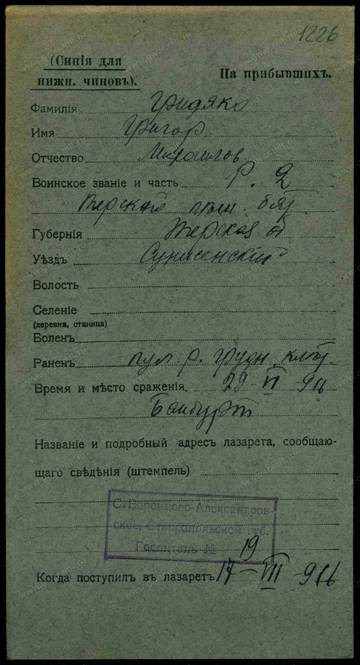 1226
(Синія для
нижн. чиновъ).
На прибывшихъ.
Фамилія Гридяко
Имя Григор
Отчество
Воинское званіе и часть Р. 2
Терскій
Губернія Терская
Уѣздъ Сунженскій
Волость
Селеніе
(деревня, станица)
Боленъ
Раненъ пул. р. грудн. клѣт
Время и мѣсто сраженія 29-VI 916
Байбурт
Названіе и подробный адресъ лазарета, сообщаю-
щаго свѣдѣнія (штемпель)
С. Воронцово-Александров-
ское, Ставропольской губ.
Госпиталь № 19
Когда поступилъ въ лазаретъ 17-VIII 916